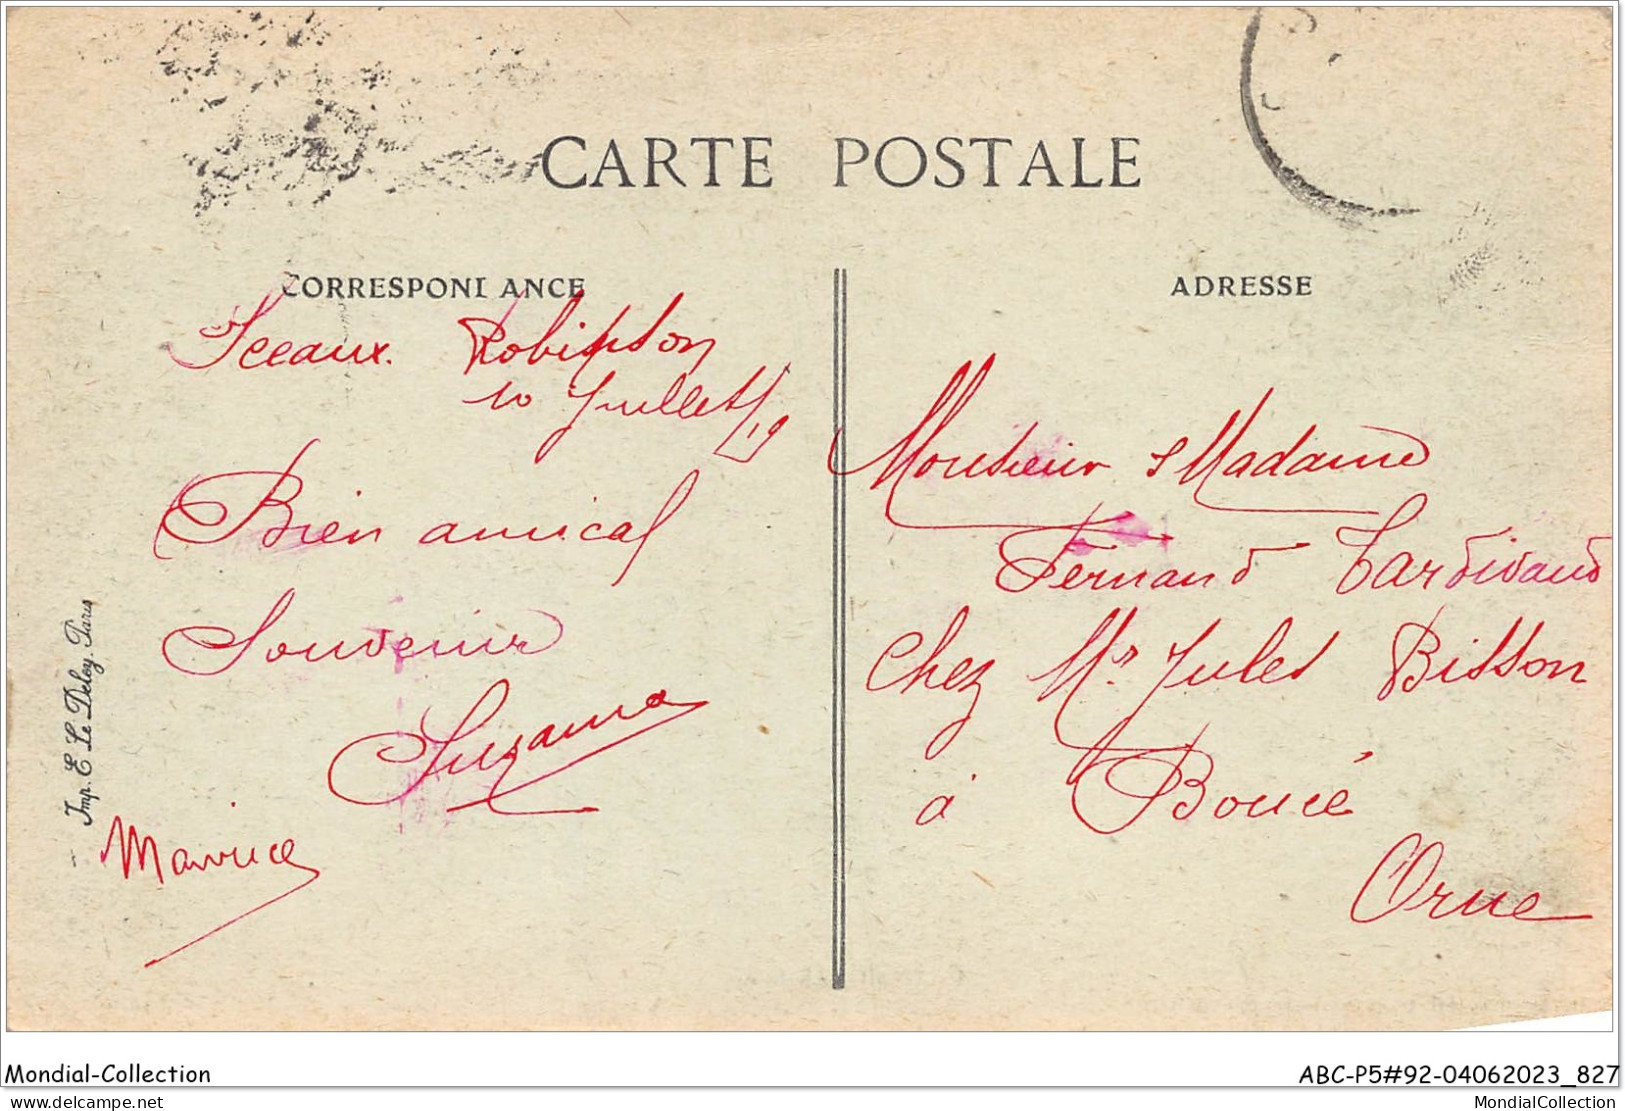 CARTE POSTALE
CORRESPONDANCE
Sceaux. Robinson
10 Juillet/19
Bien amical
Souvenir
Suzanne
Maurice
Imp. E. Le Deley, Paris
ADRESSE
Monsieur & Madame
Fernand Tardivaud
chez Mr Jules Bisson
à Boucé
Orne
Mondial-Collection
ABC-P5#92-04062023_827
delcampe.net
MondialCollection